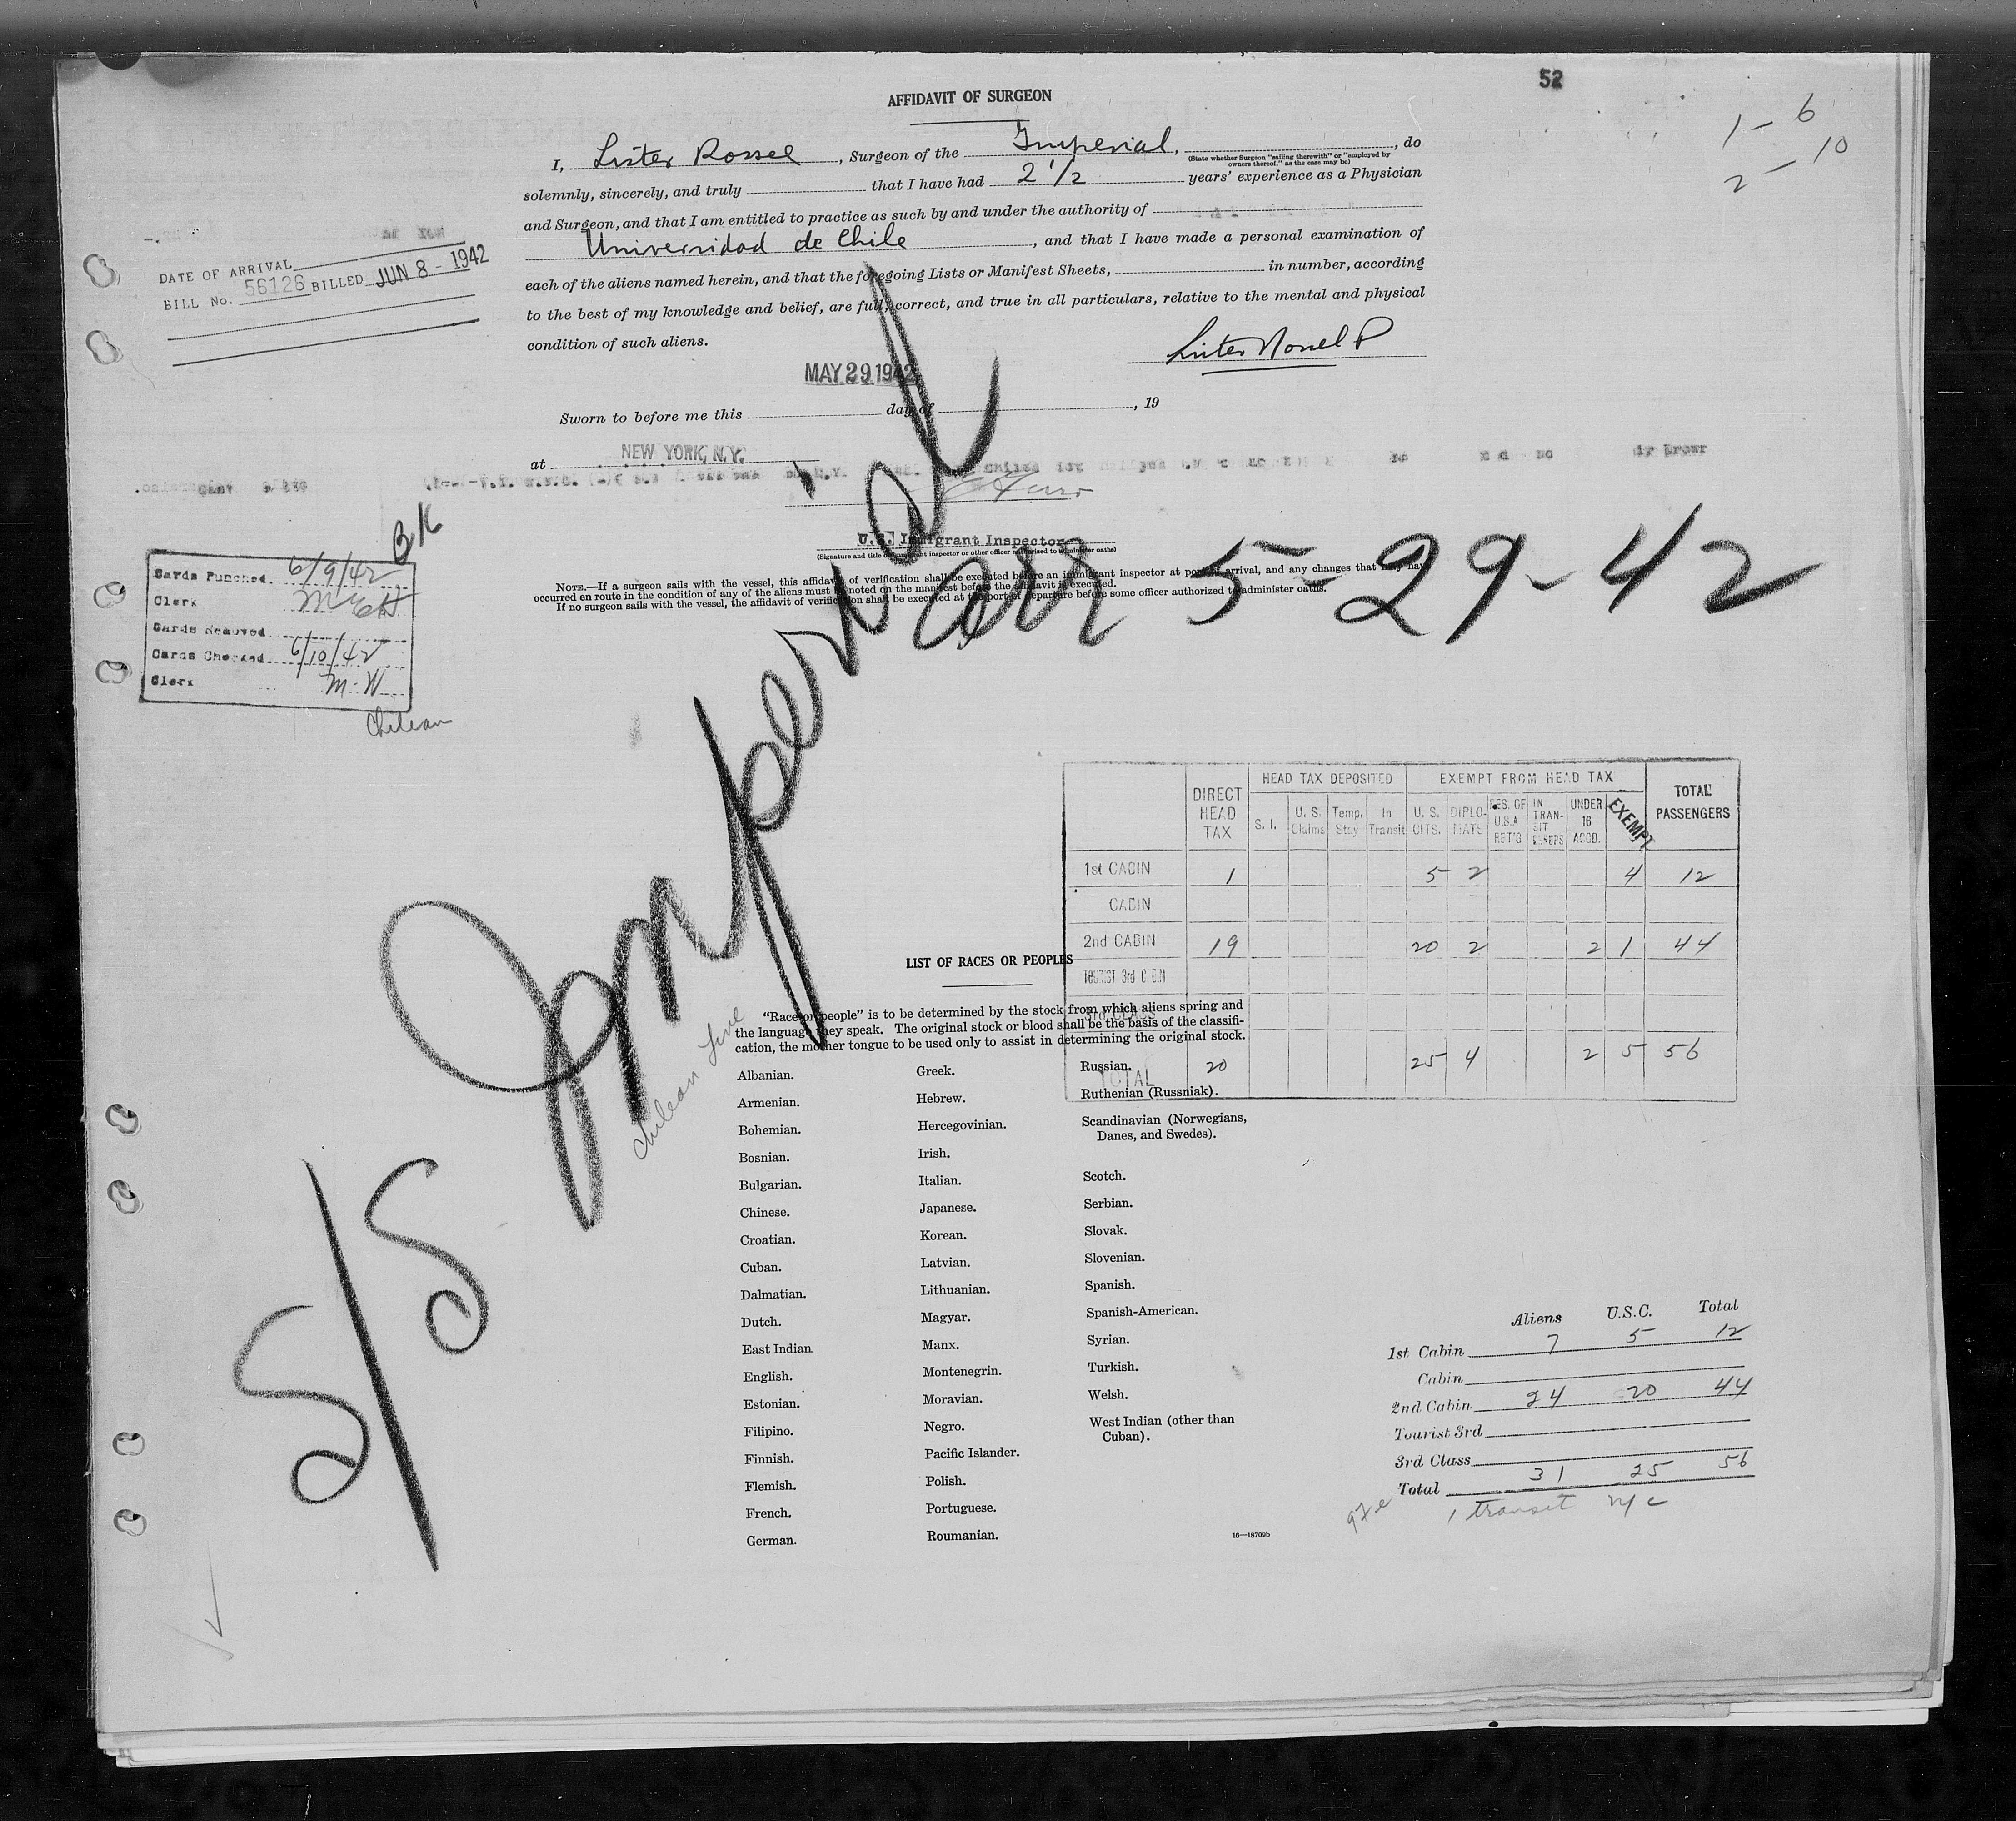 52
AFFIDAVIT OF SURGEON
1 - 6
2 - 10
I, Lister Rossel, Surgeon of the Imperial, , do
(State whether Surgeon "sailing therewith" or "employed by
owners thereof," as the case may be)
solemnly, sincerely, and truly that I have had 2 1/2 years' experience as a Physician
and Surgeon, and that I am entitled to practice as such by and under the authority of
Universidad de Chile, and that I have made a personal examination of
each of the aliens named herein, and that the foregoing Lists or Manifest Sheets, in number, according
to the best of my knowledge and belief, are full, correct, and true in all particulars, relative to the mental and physical
condition of such aliens.
Lister Rossel P
DATE OF ARRIVAL
BILL No. 56126 BILLED JUN 8 - 1942
MAY 29 1942
Sworn to before me this day of , 19
at NEW YORK, N.Y.
U.S. Immigrant Inspector
(Signature and title of immigrant inspector or other officer authorized to administer oaths)
NOTE.—If a surgeon sails with the vessel, this affidavit of verification shall be executed before an immigrant inspector at port of arrival, and any changes that may have
occurred en route in the condition of any of the aliens must be noted on the manifest before the affidavit is executed.
If no surgeon sails with the vessel, the affidavit of verification shall be executed at the port of departure before some officer authorized to administer oaths.
BK
Cards Punched 6/9/42
Clerk
Cards Removed
Cards Checked 6/10/42
Clerk M. W
Chilean
S/S Imperial
arr 5-29-42
Chilean Line
DIRECT HEAD TAX
HEAD TAX DEPOSITED
EXEMPT FROM HEAD TAX
TOTAL PASSENGERS
S. I. U. S. Claims Temp. Stay In Transit U. S. CITS. DIPLOMATS RES. OF U.S.A. RET'G IN TRANSIT UNDER 16 ACCD. EXEMPT
1st CABIN 1 5 2 4 12
CABIN
2nd CABIN 19 20 2 2 1 44
TOURIST 3rd CABIN
3rd CLASS
TOTAL 20 25 4 2 5 56
LIST OF RACES OR PEOPLES
"Race or people" is to be determined by the stock from which aliens spring and
the language they speak. The original stock or blood shall be the basis of the classifi-
cation, the mother tongue to be used only to assist in determining the original stock.
Albanian.
Armenian.
Bohemian.
Bosnian.
Bulgarian.
Chinese.
Croatian.
Cuban.
Dalmatian.
Dutch.
East Indian
English.
Estonian.
Filipino.
Finnish.
Flemish.
French.
German.
Greek.
Hebrew.
Hercegovinian.
Irish.
Italian.
Japanese.
Korean.
Latvian.
Lithuanian.
Magyar.
Manx.
Montenegrin.
Moravian.
Negro.
Pacific Islander.
Polish.
Portuguese.
Roumanian.
Russian.
Ruthenian (Russniak).
Scandinavian (Norwegians,
Danes, and Swedes).
Scotch.
Serbian.
Slovak.
Slovenian.
Spanish.
Spanish-American.
Syrian.
Turkish.
Welsh.
West Indian (other than
Cuban).
16—18709b
Aliens U.S.C. Total
1st Cabin 7 5 12
Cabin
2nd Cabin 24 20 44
Tourist 3rd
3rd Class
Total 31 25 56
1 transit